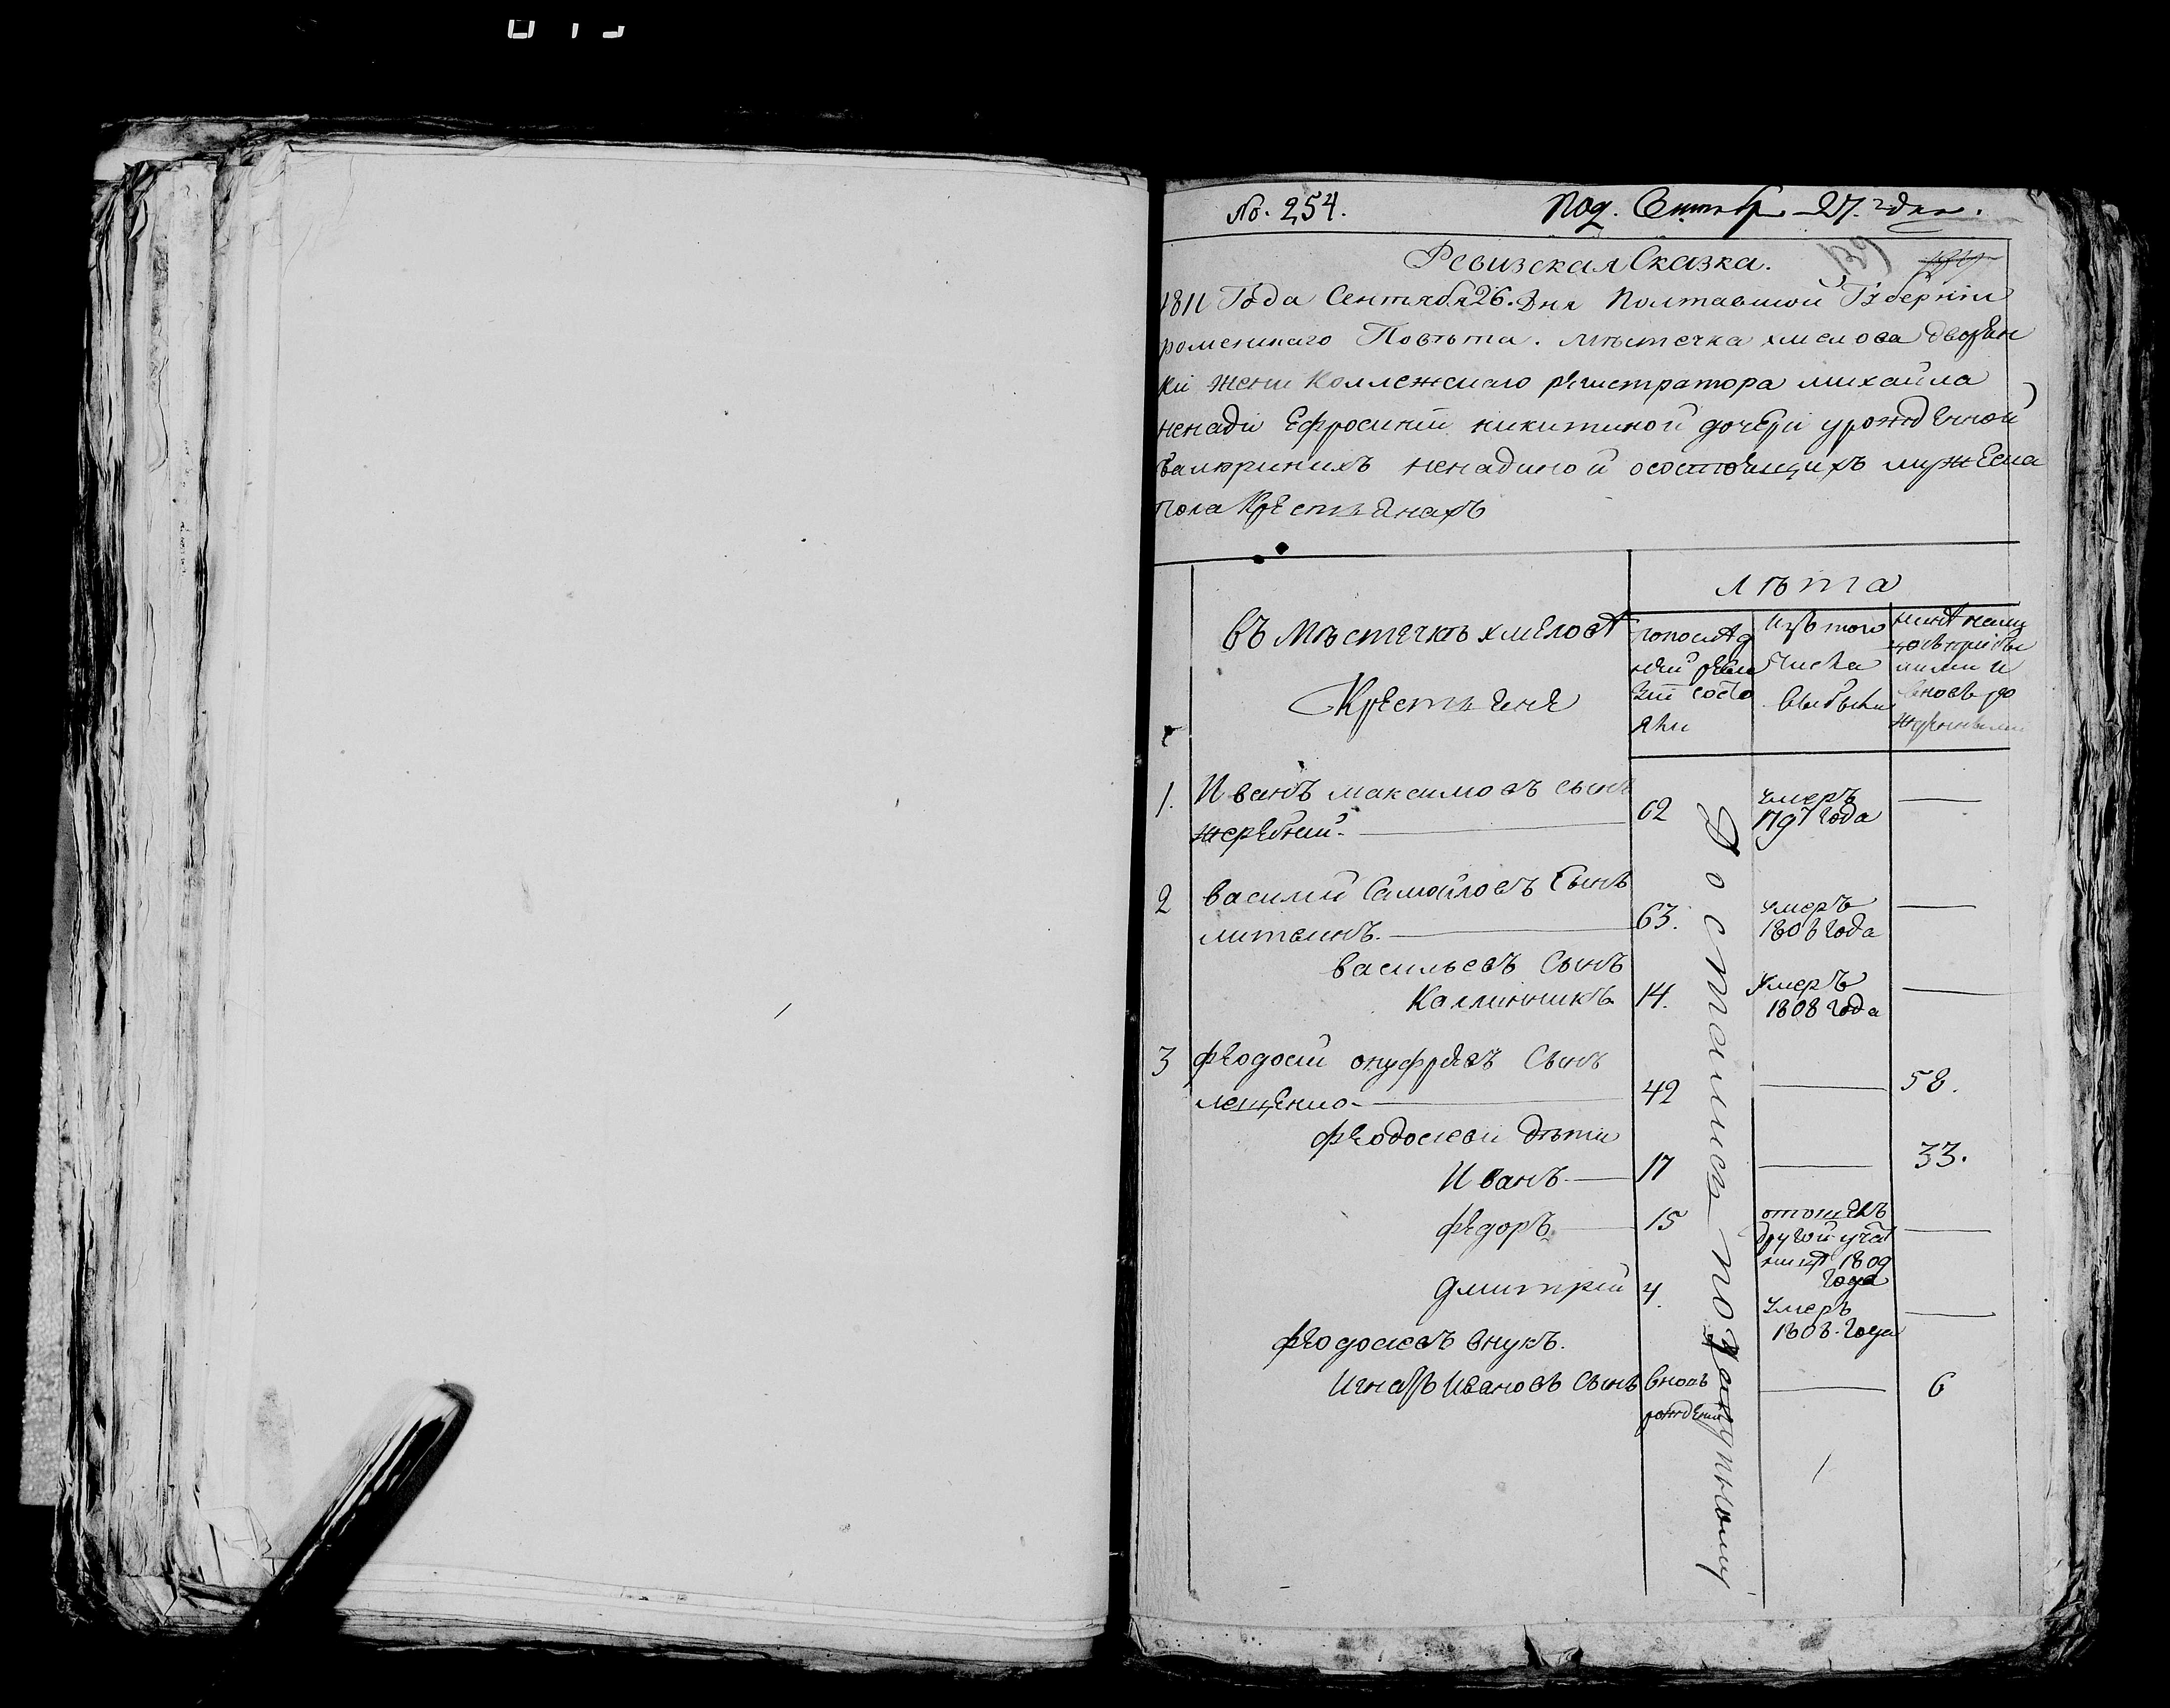 No. 254. Под. Сентябр 27. дня.
139
Ревизская Сказка.
1811 Года Сентября 26. Дня Полтавской Губерніи
роменскаго Повѣта. мѣстечка хмелова дворян
ки жени Коллежскаго регистратора михайла
ненади Ефросиніи никитиной дочери урожденной
ненадиной осостоящихъ мужеска
пола Крестьянахъ
лѣта
въ Мѣстечкѣ хмеловѣ
Крестьяне
попослѣд
ней реви
зіи состо
яли
Изъ того
числа
выбыли
нинѣ налиц
цо съ прибы
лими и
вновь ро
жденными
1. Иванъ максимовъ сынъ
жеребний. 62 умеръ 1797 года —
2 василій Самойловъ Сынъ
литвинъ. 63. умеръ 1806 года —
васильевъ Сынъ
Каллинникъ 14. умеръ 1808 года —
3 феодосій онуфріевъ Сынъ
лещенко 42 — 58.
феодосіеви дѣти
Иванъ 17 — 33.
федоръ 15 отошелъ
другой учас
1809
года —
дмитрій 4. умеръ
1808. года —
феодосіевъ внукъ.
Игнатъ Ивановъ Сынъ вновь — 6
рожденній
Досталися по